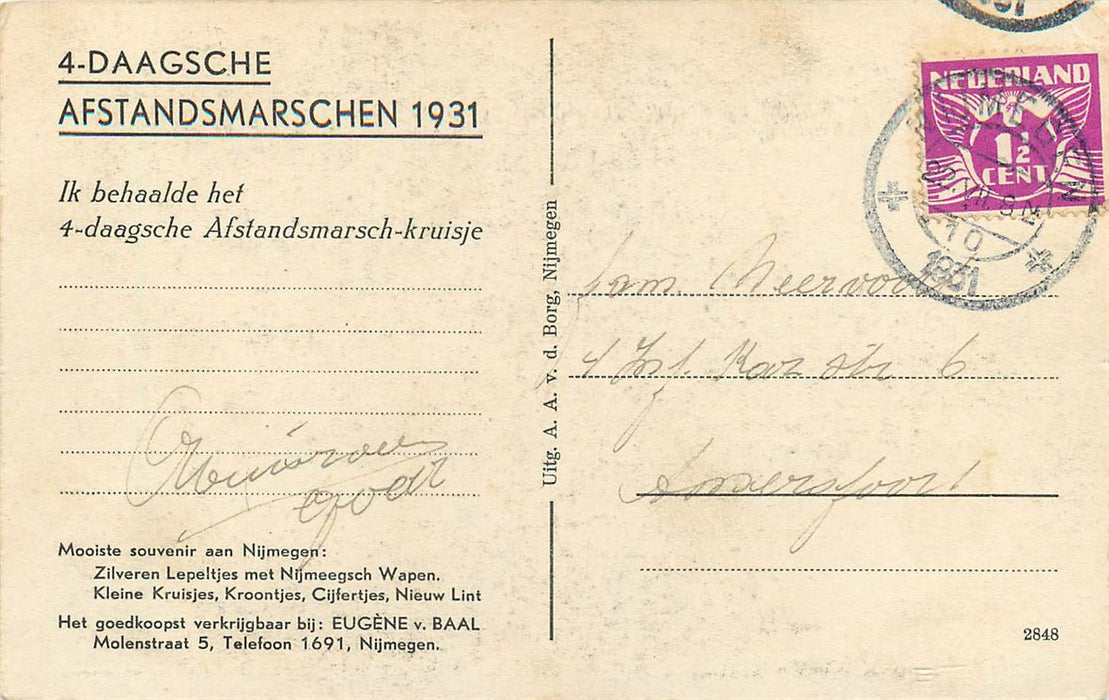 4-DAAGSCHE
AFSTANDSMARSCHEN 1931
Ik behaalde het
4-daagsche Afstandsmarsch-kruisje
Mooiste souvenir aan Nijmegen:
Zilveren Lepeltjes met Nijmeegsch Wapen.
Kleine Kruisjes, Kroontjes, Cijfertjes, Nieuw Lint
Het goedkoopst verkrijgbaar bij: EUGÈNE v. BAAL
Molenstraat 5, Telefoon 1691, Nijmegen.
Uitg. A. A. v. d. Borg, Nijmegen
NEDERLAND
1½
CENT
NIJMEGEN
10
1931
Fam. Meervoort
6
Amersfoort
2848